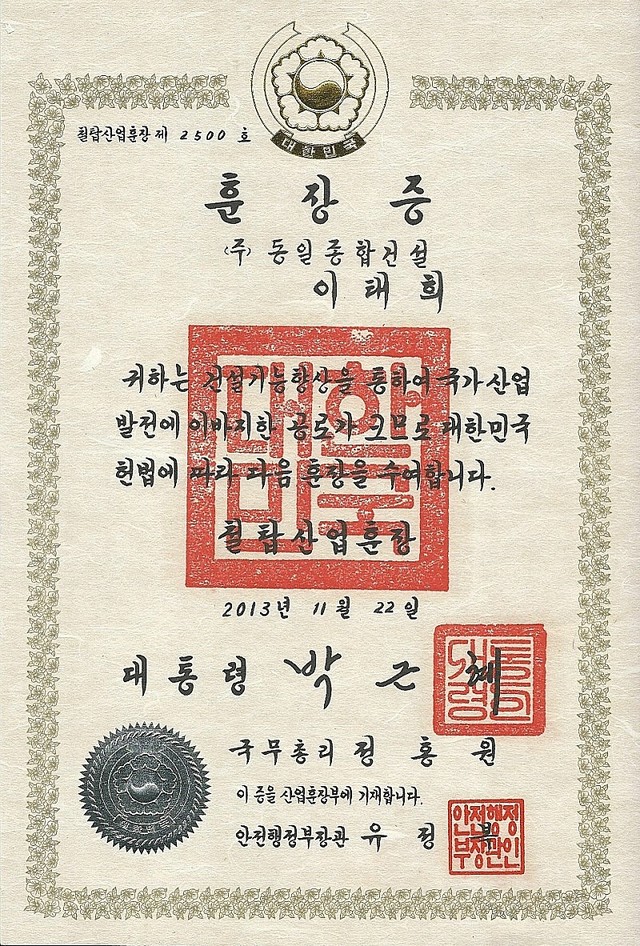 대한민국
철탑산업훈장 제 2500 호
훈장증
(주) 동일종합건설
이태희
귀하는 건설기능향상을 통하여 국가산업
발전에 이바지한 공로가 크므로 대한민국
헌법에 따라 다음 훈장을 수여합니다.
철탑산업훈장
2013년 11월 22일
대통령 박근혜
국무총리 정홍원
이 증을 산업훈장부에 기재합니다.
안전행정부장관 유정복
안전행정
부장관인